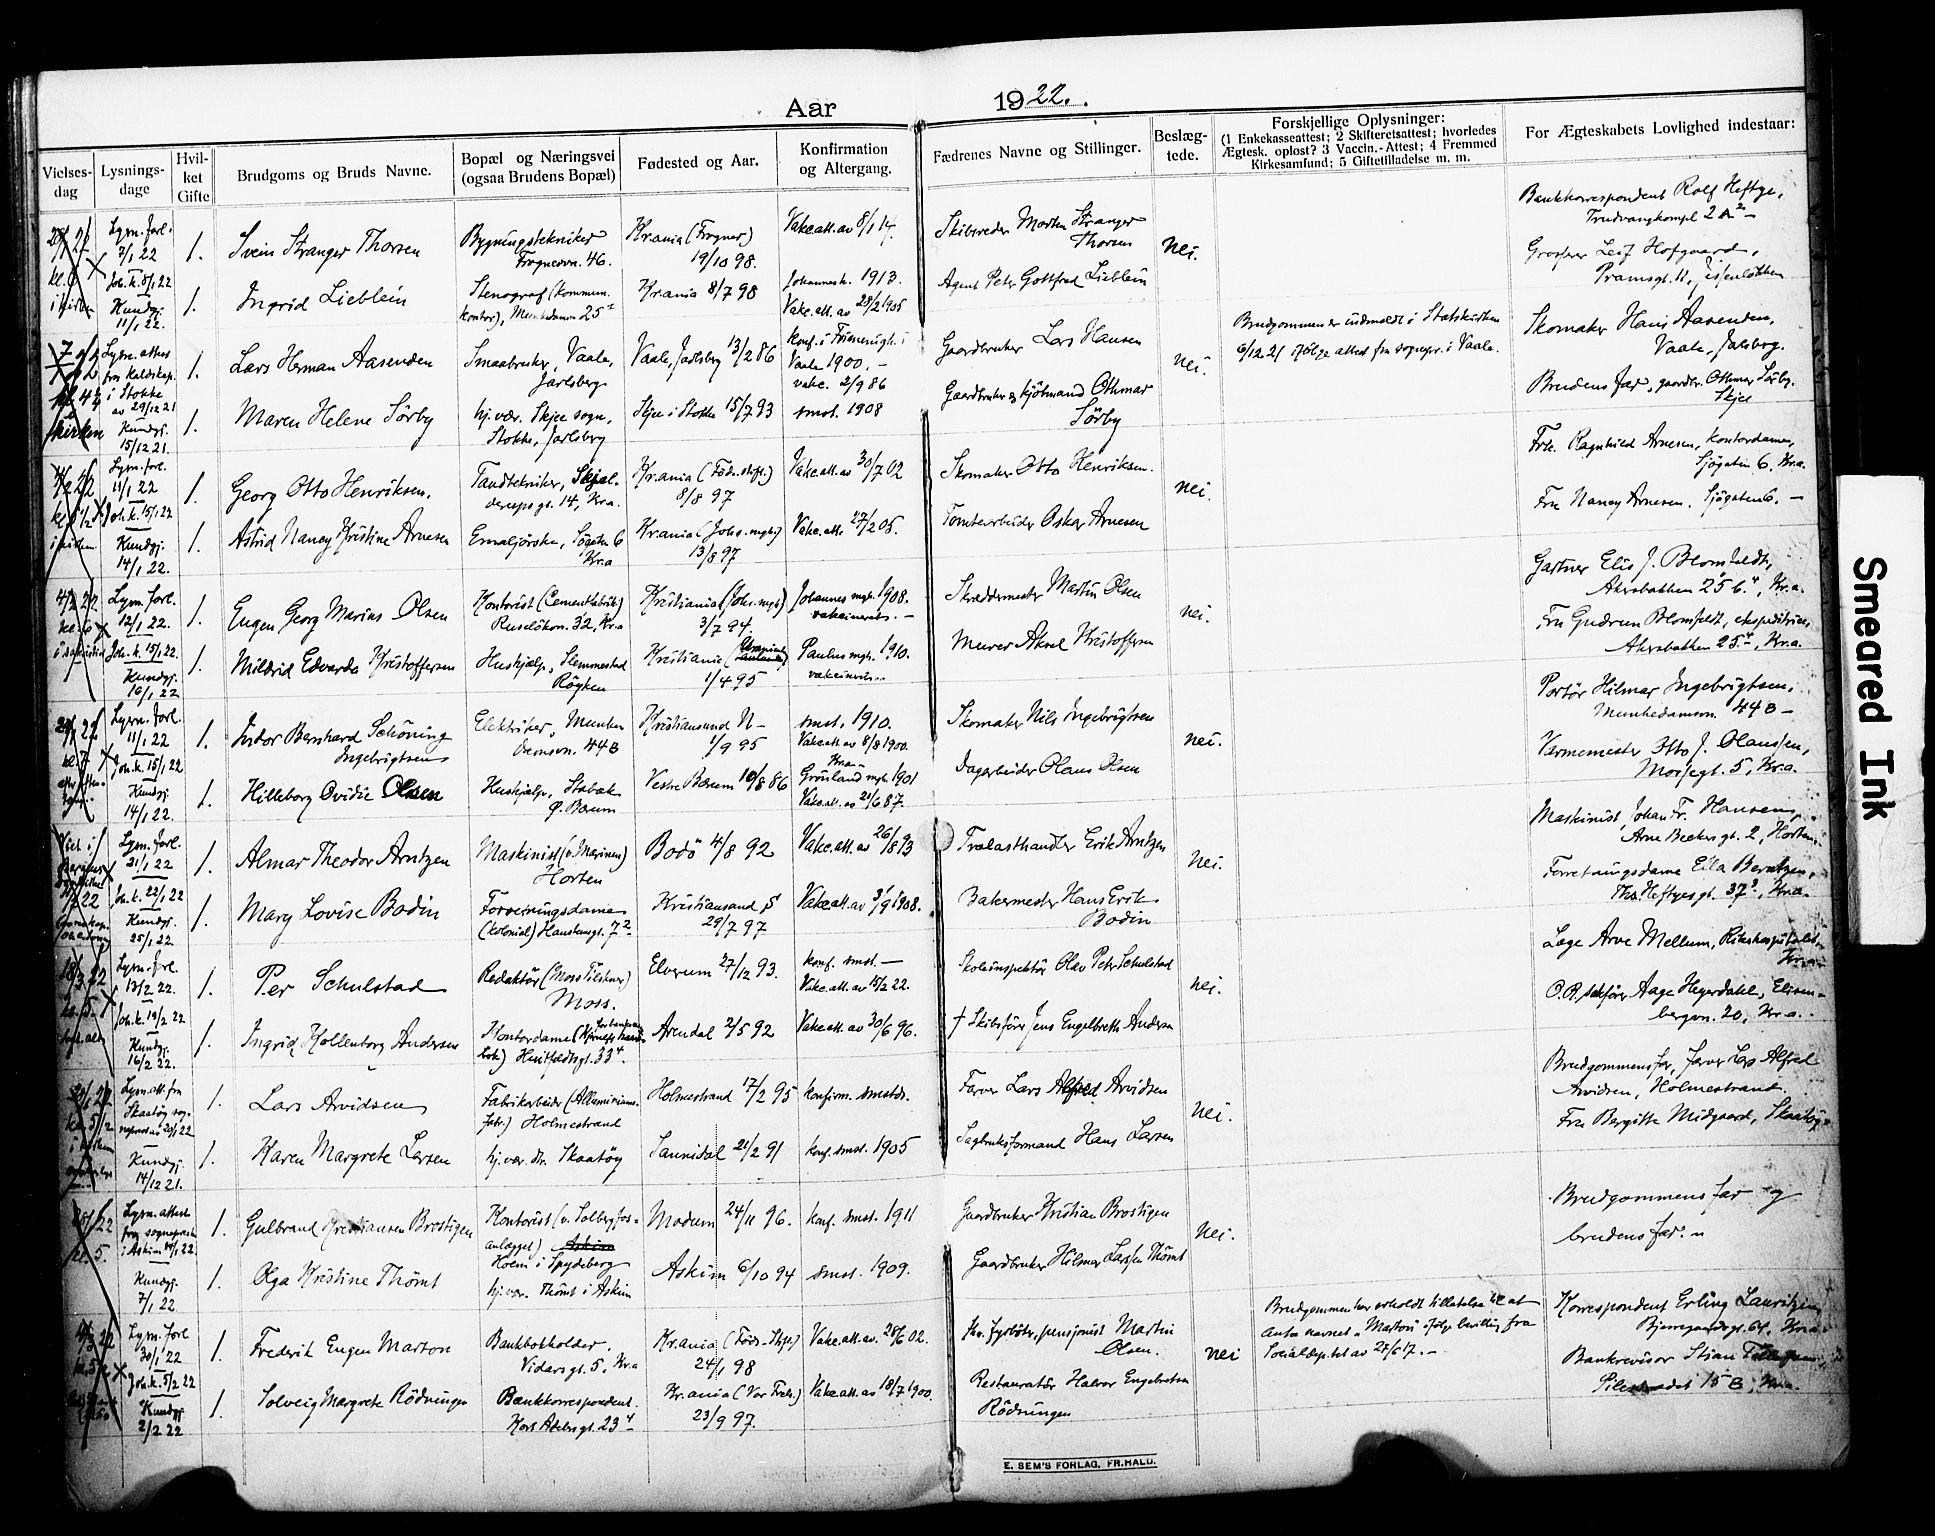 Aar 1922.
Vielses-dag
Lysnings-dage
Hvil-ket Gifte
Brudgoms og Bruds Navne.
Bopæl og Næringsvei (ogsaa Brudens Bopæl)
Fødested og Aar.
Konfirmation og Altergang.
Fædrenes Navne og Stillinger.
Beslæg-tede.
Forskjellige Oplysninger:
(1 Enkekasseattest; 2 Skifteretsattest; hvorledes
Ægtesk. opløst? 3 Vaccin.-Attest; 4 Fremmed
Kirkesamfund; 5 Giftetilladelse m. m.
For Ægteskabets Lovlighed indestaar:
Lysn. forl.
7/1 22
Joh. k. 8/1 22
Kundgj.
11/1 22.
1.
Svein Stranger Thorsen
Bygningstekniker
Frognervn. 46.
Kr.ania (Frogner)
19/10 98.
Vakc.att. av 8/1 14.
Skibsreder Morten Stranger
Thorsen
Nei.
Bankkorrespondent Rolf Heftye,
1.
Ingrid Lieblein
Stenograf (kommun.
kontor), Munkedamsv. 25
Kr.ania 8/7 98
Johannesk. 1913.
Vakc. att. av 28/2 1905
Agent Peter Gottfred Lieblein
Grosserer Leif Hofgaard,
Lysn. attest
fra
i Stokke
av 29/12 21
Kundgj.
15/12 21.
1.
Lars Herman Aasenden
Smaabruker, Vaale,
Jarlsberg
Vaale, Jarlsberg 13/2 86
Vaale 1900. –
vakc. 2/9 86
Gaardbruker Lars Hansen
nei.
Brudgommen er indmeldt i Statskirken
6/12 21 ifölge attest fra sognepr. i Vaale.
Skomaker Hans Aasenden,
Vaale, Jarlsberg.
1.
Maren Helene Sørby
hj.vær. Skjee sogn,
Stokke, Jarlsberg
Skjee i Stokke 15/7 93
smst. 1908
Gaardbruker og kjöbmand Othmar
Sørby
Brudens far, gaardbr. Othmar Sørby.
Skjee
Lysn. forl.
11/1 22
Joh. k. 15/1 22
Kundgj.
14/1 22.
1.
Georg Otto Henriksen.
Tandtekniker, Skjal-
dersgt. 14, Kr.a.
Kr.ania (Föd.stift.)
8/8 97
Vakc.att. av 30/7 02
Skomaker Otto Henriksen.
nei.
Frk. Ragnhild Arnesen, kontordame,
Sjögaten 6, Kr.a.
1.
Astrid Nancy Kristine Arnesen
Kr.a
Kr.ania (Johs. mgh.)
13/8 97
Vakc.att. 27/2 05.
Tomtearbeider Oskar Arnesen
Fru Nancy Arnesen, Sjögaten 6. –
Lysn. forl.
12/1 22.
Joh. k. 15/1 22.
Kundgj.
16/1 22
1.
Eugen Georg Marius Olsen
Kontorist (Cementfabrik)
Ruselökvn. 32, Kr.a
Kristiania (Johs. mgh.)
3/7 94
Johannes mgh. 1908.
vakcinerets. –
Skræddermester Martin Olsen
nei.
Gartner Elis J. Blomfeldt,
Akersbakken 25, Kr.a.
1.
Mildrid Edvarda Kristoffersen
Hushjælp, Slemmestad
Röyken
Kristiania
1/4 95
Paulus mgh. 1910.
Murer Aksel Kristoffersen
Fru Gudrun Blomfeldt,
Akersbakken 25, Kr.a.
Lysn. forl.
11/1 22
Joh. k. 15/1 22
Kundgj.
14/1 22.
1.
Indor Bernhard Schöning
Ingebrigtsen
Elektriker, Munke-
damsvn. 44 B
Kristiansund N –
1/9 95
smst. 1910.
Vakc.att. av 8/8 1900.
Skomaker Nils Ingebrigtsen
nei.
Portör Hilmar Ingebrigtsen,
Munkedamsvn. 44 B –
1.
Hilleborg Ovidie Olsen
Hushjælp, Stabæk
Ø. Bærum
Vestre Bærum 10/8 86
Grönland mgh. 1901
Vakc.att. av 21/6 87.
Dagarbeider Olaus Olsen
Varmemester Otto J. Olaussen,
Mossegt. 5, Kr.a.
Lysn. forl.
21/1 22
Joh. k. 22/1 22
Kundgj.
25/1 22.
1.
Almar Theodor Arntzen
Maskinist (v. Marinen)
Horten
Bodö 4/8 92
Vakc.att. av 26/8 93
Trælasthandler Erik Arntzen
Nei.
Maskinist Johan Fr. Hansen,
1.
Mary Lovise Bodin
Forretningsdame
(Kolonial)
Kristiansand S
29/7 97
Bakermester Hans Erik
Bodin
Forretningsdame Ella Berntzen,
Ths. Heftyesgt. 37, Kr.a.
Lysn. forl.
13/2 22.
Joh. k. 19/2 22
Kundgj.
16/2 22.
1.
Per Schulstad
Redaktör (Moss Tilskuer)
Moss.
Elverum 27/12 93.
konf. smst. –
Vakc.att. av 15/2 22.
Skoleinspektör Olav Peter Schulstad
nei.
Læge Arve Mellum, Rikshospitalet
Kr.a.
1.
Ingrid Kollenborg Andersen
Kontordame
Arendal 2/5 92
Vakc.att. av 30/6 96.
† Skibsförer Jens Engelbreth Andersen
O.R. sakförer Aage Heyerdahl, Elisen-
bergvn. 20, Kr.a.
Lysn. att. fra
Skaatöy sog-
Kundgj.
14/12 21.
1.
Lars Arvidsen
Fabrikarbeider (Alluminiums-
fabr.) Holmestrand
Holmestrand 17/2 95
konfirm. smstds.
Farver Lars Alfred Arvidsen
nei.
Brudgommens far, farver Lars Alfred
Arvidsen, Holmestrand.
1.
Karen Margrete Larsen
hj.vær. dtr. Skaatöy
Sannidal 21/2 91
konf. smst. 1905
Sagbruksformand Hans Larsen
Fru Bergitte Midgaard, Skaatöy
Lysn. attest
fra sogneprest
i Askim
Kundgj.
7/1 22
1.
Gulbrand Kristiansen Brostigen
Kontorist (v. Solbergfos-
anlægget)
Holm i Spydeberg
Modum 24/11 96.
konf. smst. 1911
Gaardbruker Kristian Brostigen
nei.
Brudgommens far og
brudens far.
1.
Olga Kristine Thömt
hj.vær. Thömt i Askim
Askim 6/10 94
smst. 1909.
Gaardbruker Hilmar Larsen Thömt
Lysn. forl
30/1 22
Joh. k. 5/2 22
Kundgj.
2/2 22
1.
Frederik Eugen Marton
Bankbokholder,
Vidarsgt. 5. Kr.a
Kr.ania (Föds.stift.)
24/1 98
Vakc.att. av. 28/6 02.
pensjonist Martin
Olsen.
nei
Brudgommen har erholdt tillatelse til at
anta navnet "Marton" ifölge bevilling fra
Socialdep.tet av 27/6 17. –
Korrespondent Erling Lauritzen
Kr.a.
1.
Solveig Margrete Rödningen
Bankkorrespondent.
Kort Adelersgt. 23
Kr.ania (Vor Frels.)
23/9 97.
Vakc.att. av 18/7 1900.
Restauratör Halvor Engebretsen
Rödningen
Bankrevisor Stian
Pilestrædet 15 B, Kr.a.
E. SEM'S FORLAG, FR.HALD.
Smeared Ink